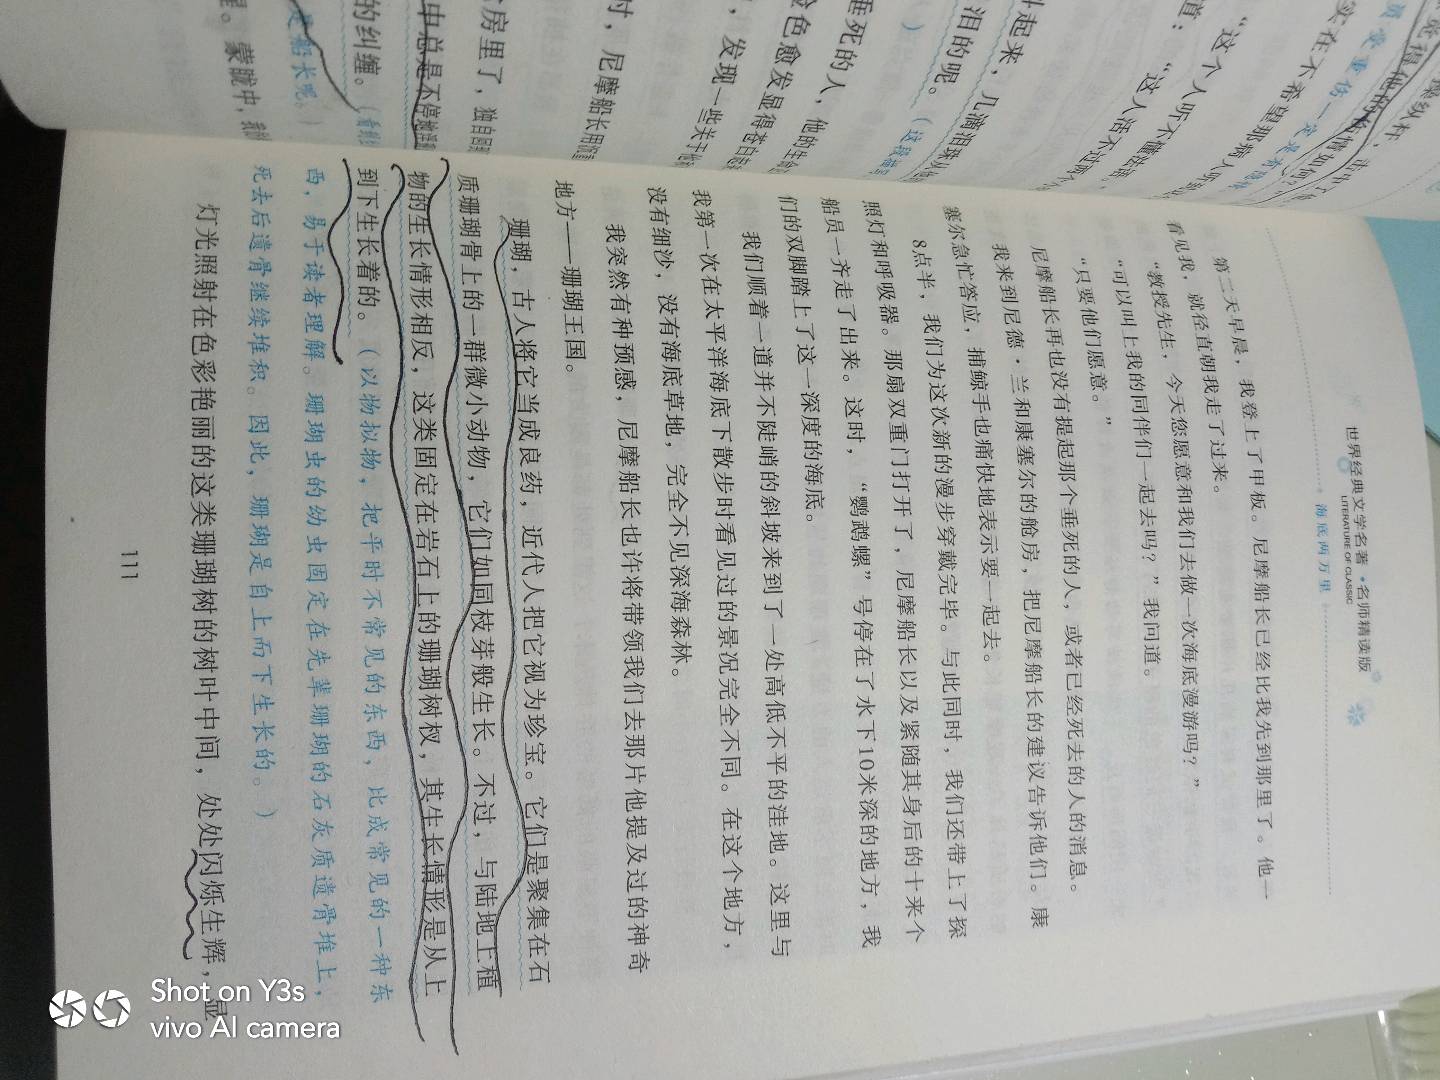 世界经典文学名著·名师精读版
LITERATURE OF CLASSIC
海底两万里
第二天早晨，我登上了甲板。尼摩船长已经比我先到那里了。他一
看见我，就径直朝我走了过来。
“教授先生，今天您愿意和我们去做一次海底漫游吗？”
“可以叫上我的同伴们一起去吗？”我问道。
“只要他们愿意。”
尼摩船长再也没有提起那个垂死的人，或者已经死去的人的消息。
我来到尼德·兰和康塞尔的舱房，把尼摩船长的建议告诉他们。康
塞尔急忙答应，捕鲸手也痛快地表示要一起去。
8点半，我们为这次新的漫步穿戴完毕。与此同时，我们还带上了探
照灯和呼吸器。那扇双重门打开了，尼摩船长以及紧随其身后的十来个
船员一齐走了出来。这时，“鹦鹉螺”号停在了水下10米深的地方，我
们的双脚踏上了这一深度的海底。
我们顺着一道并不陡峭的斜坡来到了一处高低不平的洼地。这里与
我第一次在太平洋海底下散步时看见过的景况完全不同。在这个地方，
没有细沙，没有海底草地，完全不见深海森林。
我突然有种预感，尼摩船长也许将带领我们去那片他提及过的神奇
地方——珊瑚王国。
珊瑚，古人将它当成良药，近代人把它视为珍宝。它们是聚集在石
质珊瑚骨上的一群微小动物，它们如同枝芽般生长。不过，与陆地上植
物的生长情形相反，这类固定在岩石上的珊瑚树杈，其生长情形是从上
到下生长着的。（以物拟物，把平时不常见的东西，比成常见的一种东
西，易于读者理解。珊瑚虫的幼虫固定在先辈珊瑚的石灰质遗骨堆上，
死去后遗骨继续堆积。因此，珊瑚是自上而下生长的。）
灯光照射在色彩艳丽的这类珊瑚树的树叶中间，处处闪烁生辉，显
111
“这个人听不懂法语。”
道：“这人活不过两个
斗起来，几滴泪珠从他
泪的呢。（这段描写
垂死的人，他的生命
脸色愈发显得苍白
，发现一些关于他
时，尼摩船长用
房里了，独自回
中总是不停地
的纠缠。
是船长呢。）
蒙眬中，我
Shot on Y3s
vivo AI camera